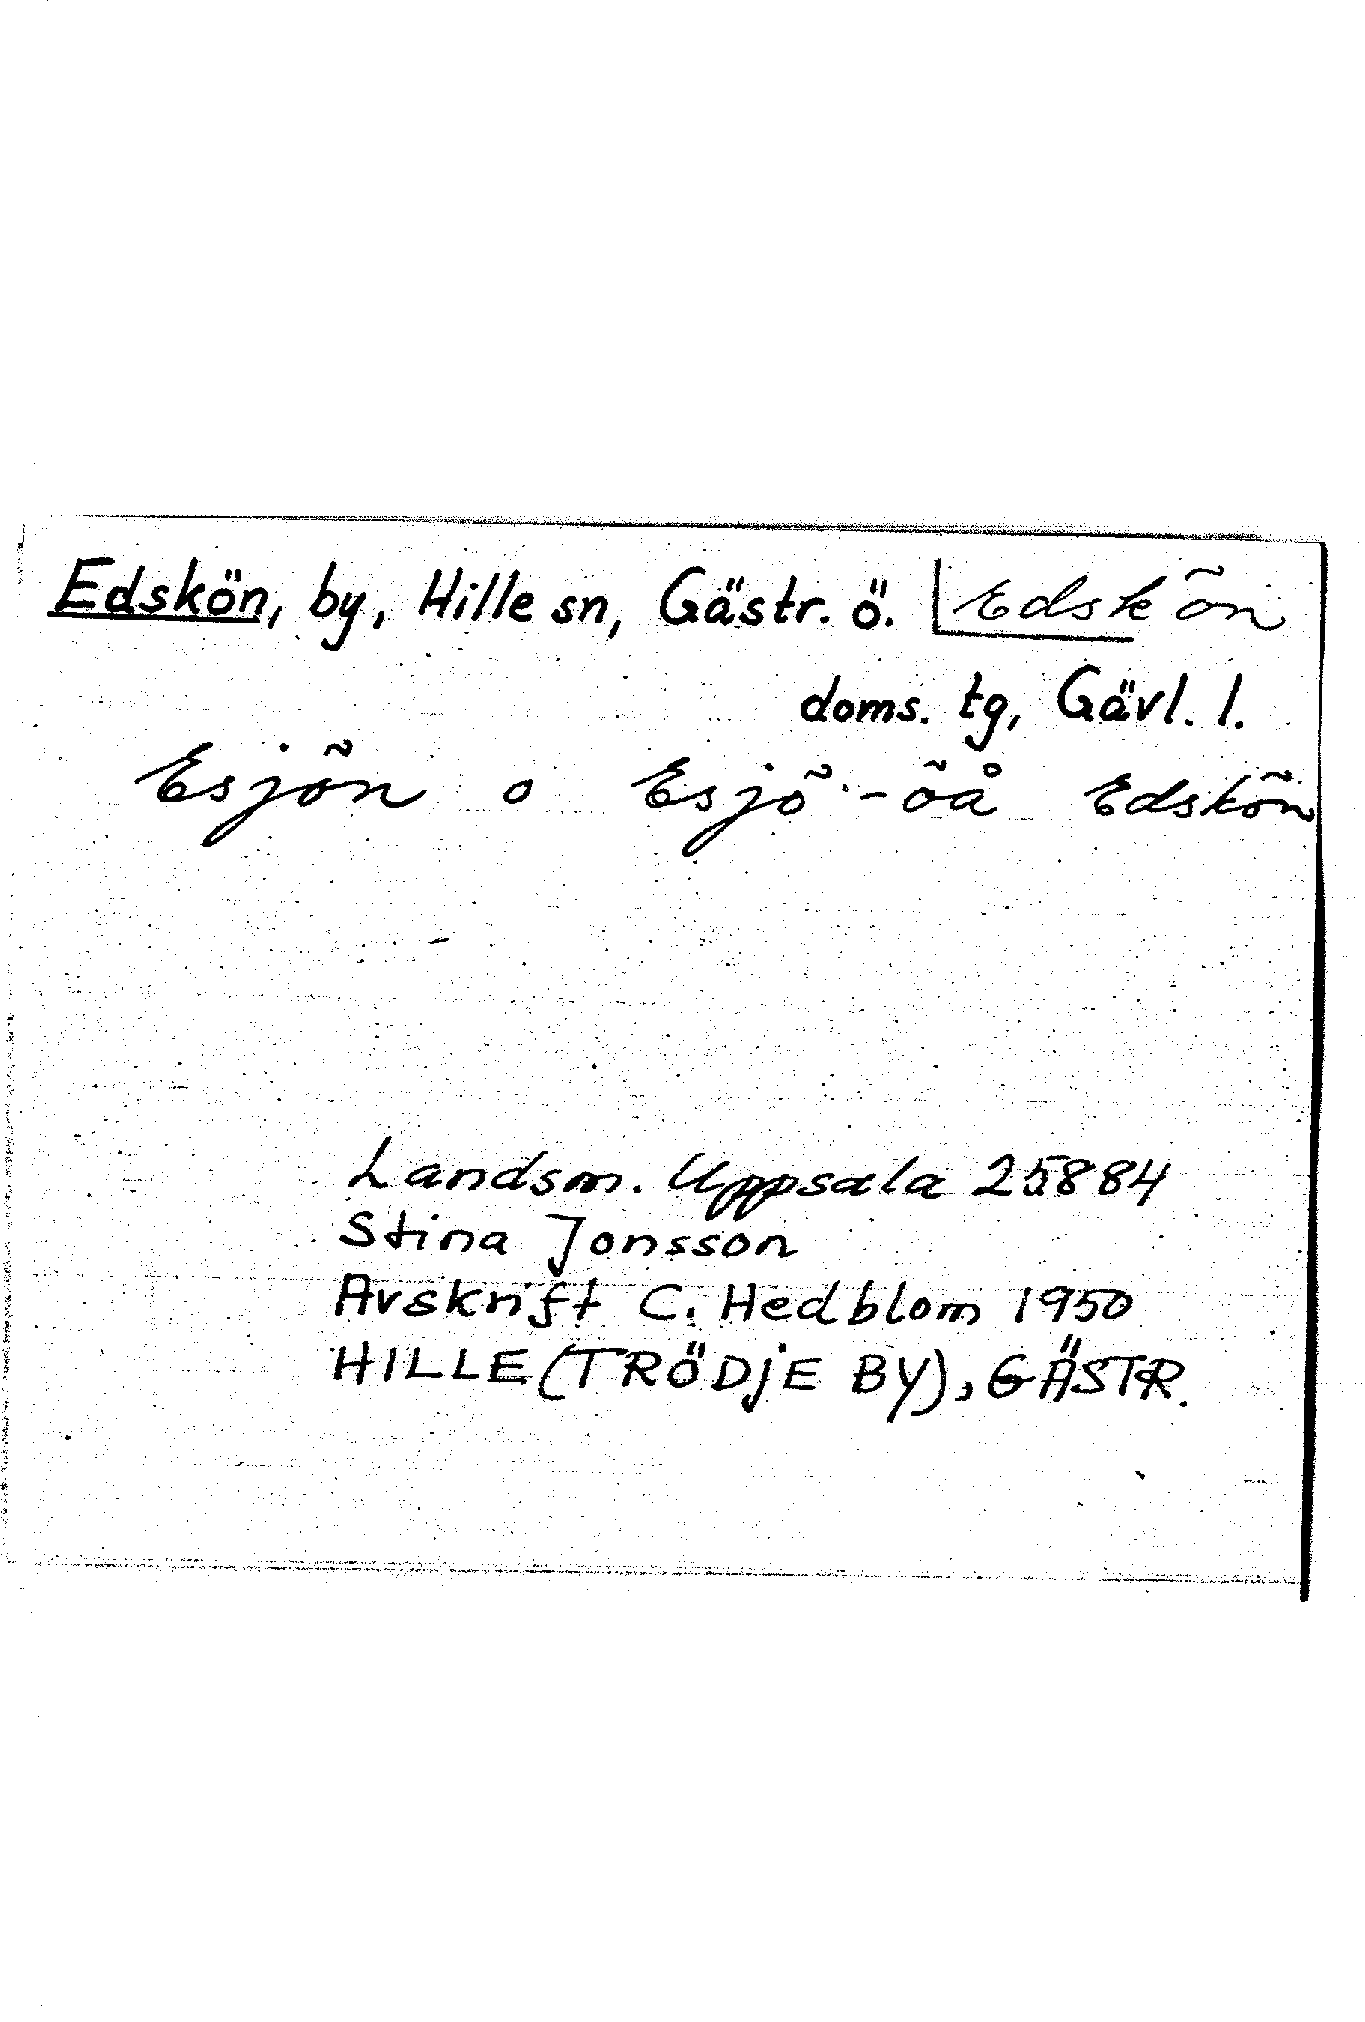 Edskön, by, Hille sn, Gästr. ö. Edskõn
doms. tg, Gävl. l.
Esjõn o Esjõ -õå Edskõn
Landsm. Uppsala 25884
Stina Jonsson
Avskrift C. Hedblom 1950
HILLE (TRÖDJE BY), GÄSTR.